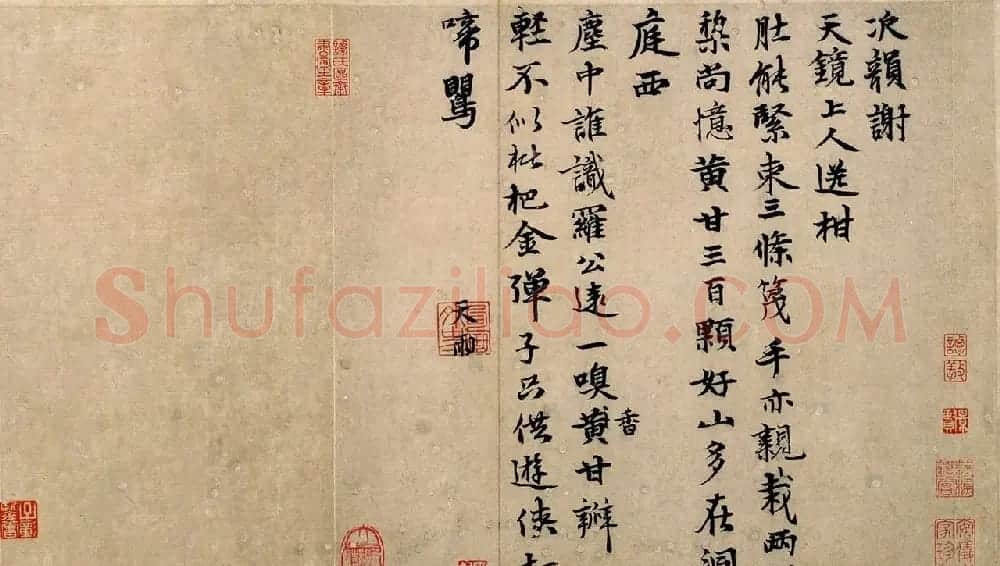 次韻謝
天鏡上人送柑
肚能緊束三條篾手亦親栽兩
棃尚憶黄甘三百顆好山多在洞
庭西
塵中誰識羅公遠一嗅黄甘辦
香
輕不似枇杷金彈子只供遊俠
啼鸎
天雨
Shufaziliao.COM